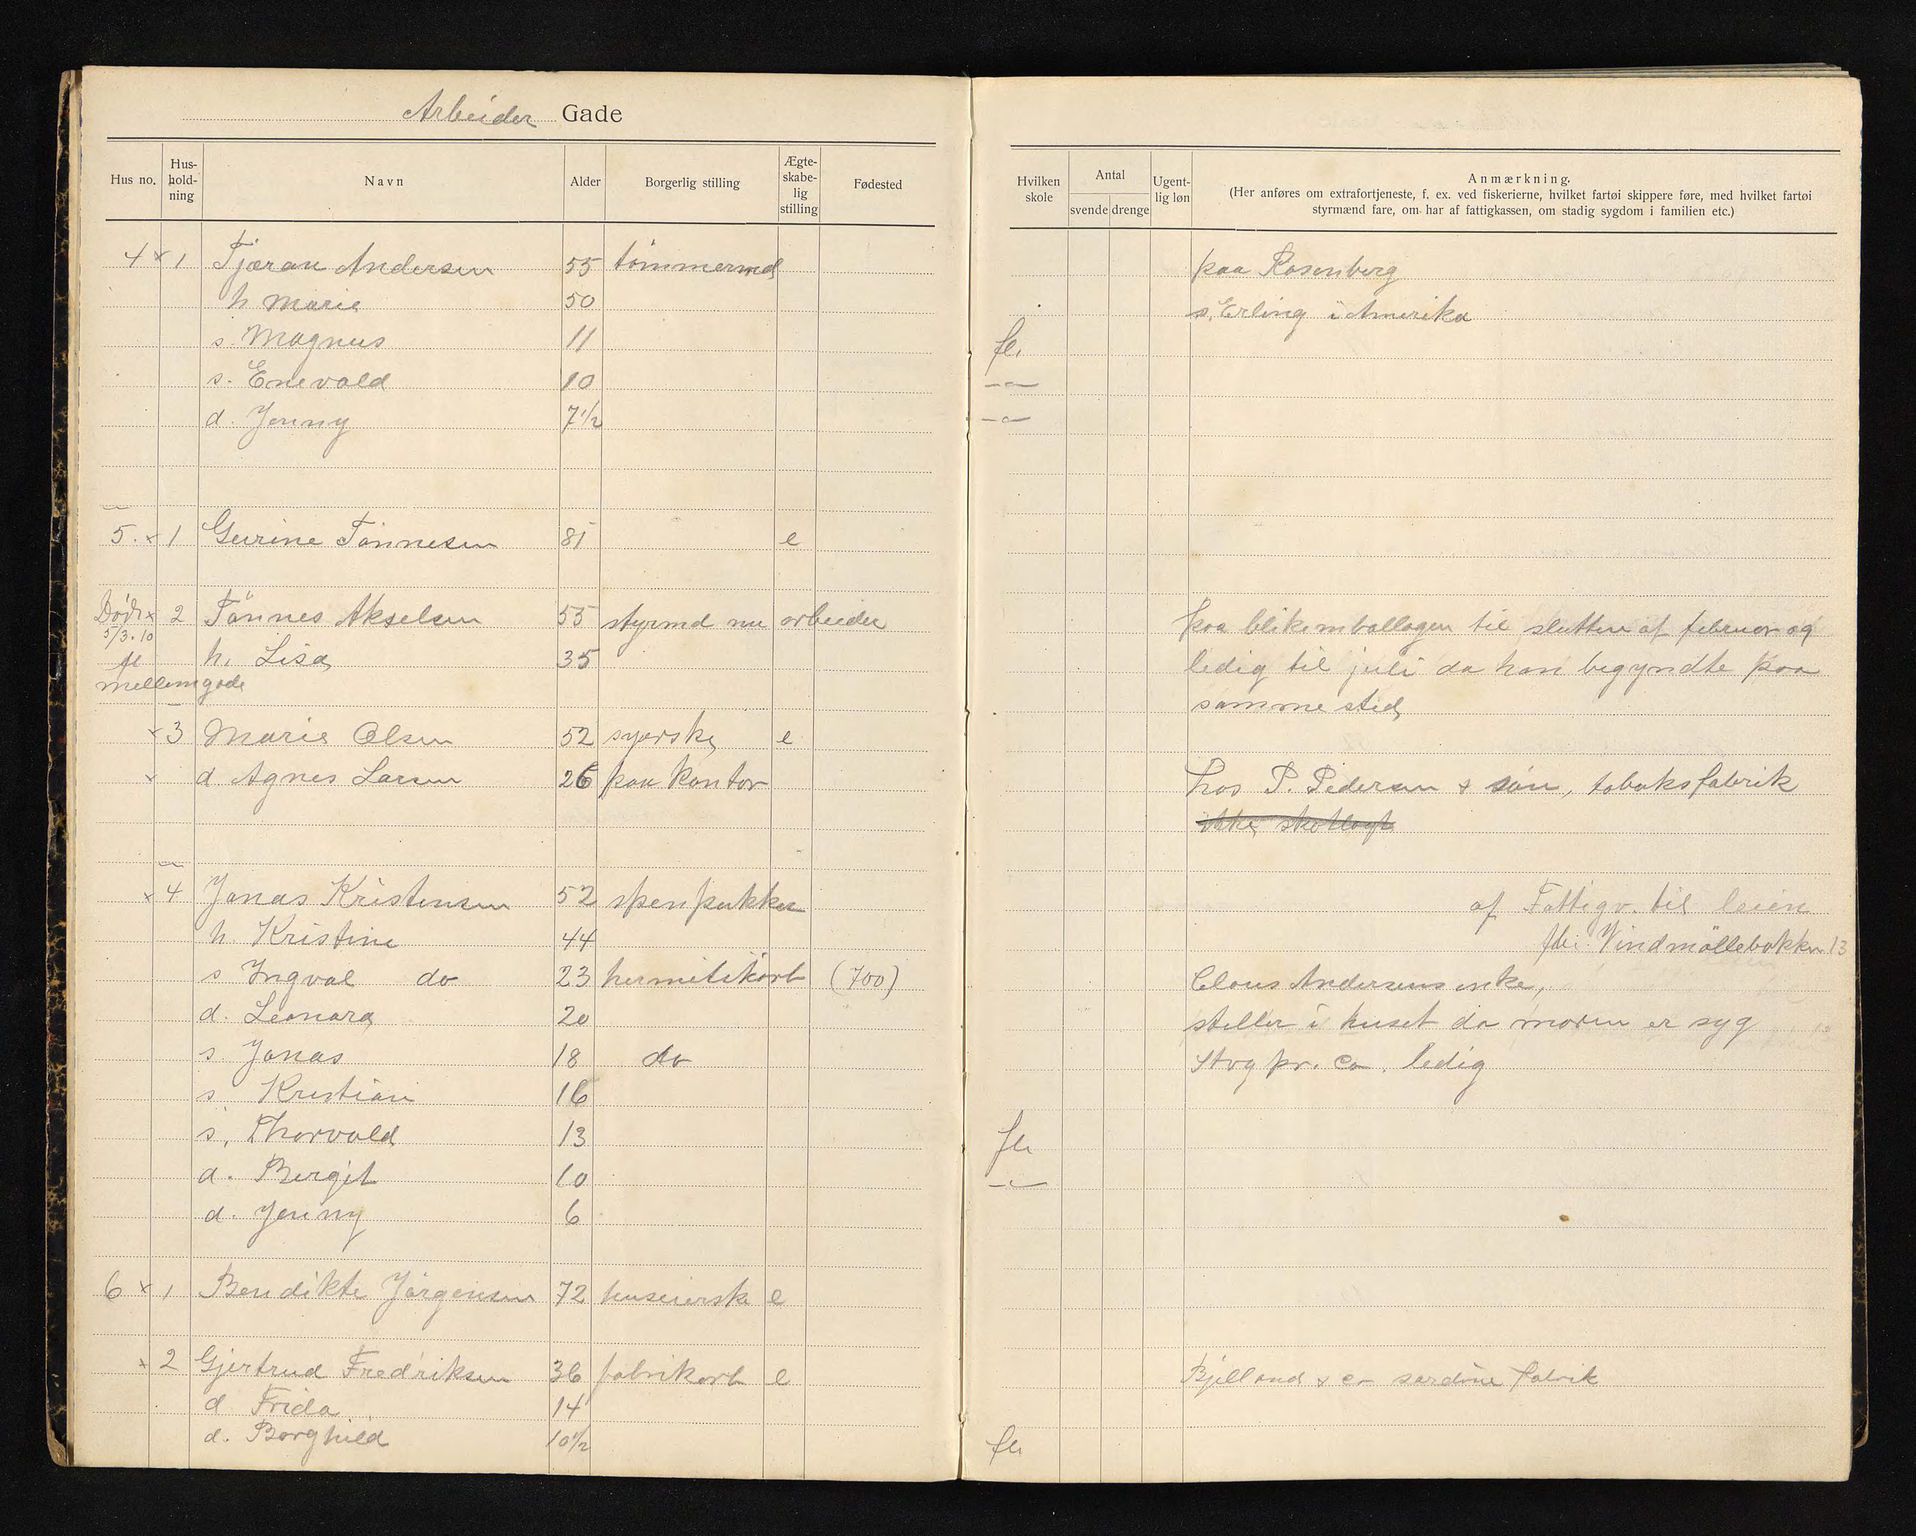 Arbeider Gade
Hus no. Hus-hold-ning Navn Alder Borgerlig stilling Ægte-skabe-lig stilling Fødested
Hvilken skole Antal svende drenge Ugent-lig løn Anmærkning.
(Her anføres om extrafortjeneste, f. ex. ved fiskerierne, hvilket fartøi skippere føre, med hvilket fartøi
styrmænd fare, om har af fattigkassen, om stadig sygdom i familien etc.)
4 × 1 Tjæran Andersen 55 tømmermd paa Rosenberg
h Marie 50 s. Erling i Amerika
s. Magnus 11 fl.
s. Enevald 10 —"—
d. Jenny 7 1/2 —"—
5. × 1 Gurine Tønnesen 81 e
Død × 2 Tønnes Akselsen 55 styrmd nu arbeider paa blikemballagen til slutten af februar og
5/3.10
fl h. Lisa 35 ledig til juli da han begyndte paa
mellemgade
samme sted
× 3 Marie Olsen 52 syerske e
× d Agnes Larsen 26 paa kontor hos P. Pedersen & søn, tobaksfabrik
ikke skatlagt
× 4 Jonas Kristensen 52 stenpukker af Fattigv. til leien
h. Kristine 44 Vindmøllebakken 13
s Ingval do 23 hermetikarb (700) Claus Andersens enke,
d. Leonora 20 steller i huset da moren er syg
s Jonas 18 do Stvg pr. Co. ledig
s. Kristian 16
s. Thorvald 13 fl.
d. Bergit 10 —"—
d. Jenny 6
6 × 1 Bendikte Jørgensen 72 huseierske e
× 2 Gjertrud Fredriksen 36 fabrikarb e Bjelland & co sardine fabrik
d Frida 14
d. Borghild 10 1/2 fl.